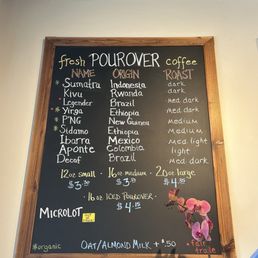 fresh POUROVER coffee
NAME ORIGIN ROAST
*Sumatra Indonesia dark
Kivu Rwanda dark
*Legender Brazil med. dark
*Yirga Ethiopia med dark
*P'NG New Guinea medium
*Sidamo Ethiopia medium
Ibarra Mexico medium
Aponte Colombia med light
Decaf Brazil med dark
12oz small · 16oz medium · 20oz large
$3.50
· 16oz ICED POUROVER ·
MICROLOT
*organic
OAT/ALMOND MILK + $.50
*fair trade